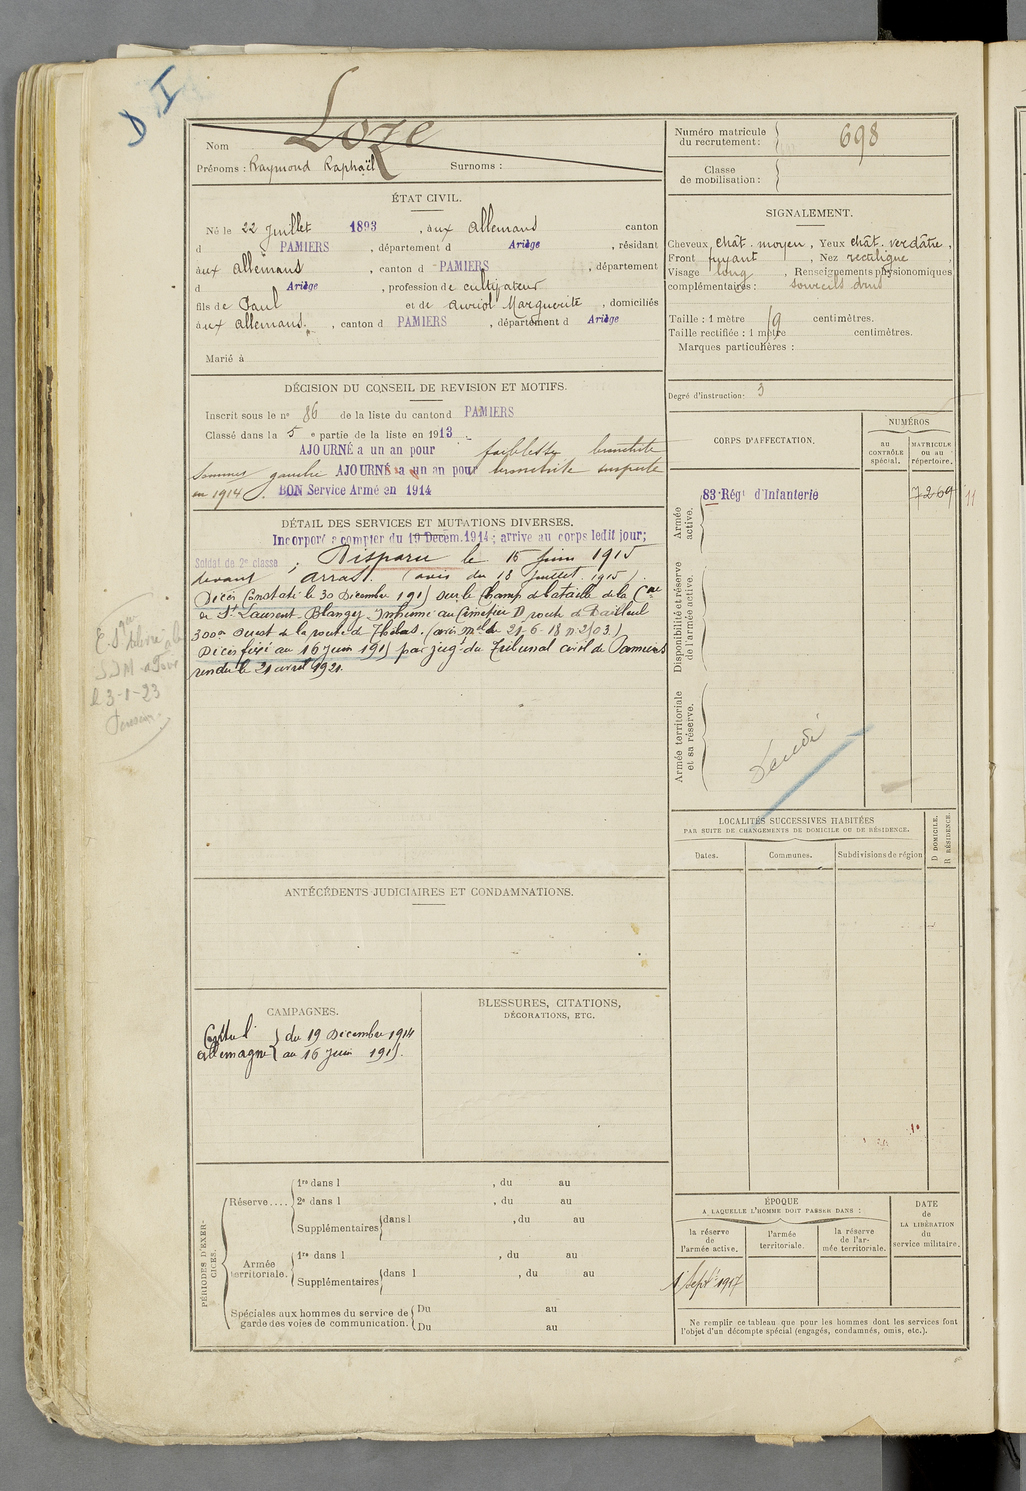 D I
Nom Loze
Prénoms : Raymond Raphaël Surnoms :
Numéro matricule du recrutement : 698
Classe de mobilisation :
ÉTAT CIVIL.
Né le 22 Juillet 1893, aux Allemans canton
d PAMIERS, département d Ariège, résidant
aux Allemans, canton d PAMIERS, département
d Ariège, profession de cultivateur
fils de Paul et de Auriol Marguerite, domiciliés
aux Allemans, canton d PAMIERS, département d Ariège
Marié à
SIGNALEMENT.
Cheveux chât. moyen, Yeux chât. verdâtre,
Front fuyant, Nez rectiligne,
Visage long, Renseignements physionomiques
complémentaires : sourcils drus
Taille : 1 mètre centimètres.
Taille rectifiée : 1 mètre centimètres.
Marques particulières :
Degré d'instruction : 3
DÉCISION DU CONSEIL DE REVISION ET MOTIFS.
Inscrit sous le n° 86 de la liste du canton d PAMIERS
Classé dans la 5 e partie de la liste en 1913
AJOURNÉ a un an pour faiblesse bronchite
sommet gauche AJOURNÉ a un an pour bronchite suspecte
en 1914. BON Service Armé en 1914
DÉTAIL DES SERVICES ET MUTATIONS DIVERSES.
Incorporé a compter du 19 Décem. 1914 ; arrive au corps ledit jour;
Soldat de 2e classe ; Disparu le 16 Juin 1915
devant Arras. (avis du 18 Juillet 1915).
Décès constaté le 30 Décembre 1915 sur le champ de bataille de la Cne
de St Laurent-Blangy. Inhumé au Cimetière D, route de Bailleul
300m ouest de la route de Thélus. (avis mel du 21-6-18 n° 2503.)
Décès fixé au 16 Juin 1915 par jugt du Tribunal civil de Pamiers
rendu le 21 avril 1921.
le 3-1-23
CORPS D'AFFECTATION.
NUMÉROS
au CONTRÔLE spécial.
MATRICULE ou au répertoire.
Armée active.
83e Régt d'Infanterie 7269 11
Disponibilité et réserve de l'armée active.
Armée territoriale et sa réserve.
LOCALITÉS SUCCESSIVES HABITÉES
PAR SUITE DE CHANGEMENTS DE DOMICILE OU DE RÉSIDENCE.
Dates. Communes. Subdivisions de région
D DOMICILE.
R RÉSIDENCE.
ANTÉCÉDENTS JUDICIAIRES ET CONDAMNATIONS.
CAMPAGNES.
Contre l' } du 19 Décembre 1914
Allemagne } au 16 Juin 1915.
BLESSURES, CITATIONS,
DÉCORATIONS, ETC.
PÉRIODES D'EXERCICES.
Réserve....
1re dans l , du au
2e dans l , du au
Supplémentaires dans l , du au
Armée territoriale.
1re dans l , du au
Supplémentaires dans l , du au
Spéciales aux hommes du service de garde des voies de communication.
Du au
Du au
ÉPOQUE
A LAQUELLE L'HOMME DOIT PASSER DANS :
la réserve de l'armée active.
l'armée territoriale.
la réserve de l'armée territoriale.
DATE de LA LIBÉRATION du service militaire.
1r Septbre 1917
Ne remplir ce tableau que pour les hommes dont les services font
l'objet d'un décompte spécial (engagés, condamnés, omis, etc.).